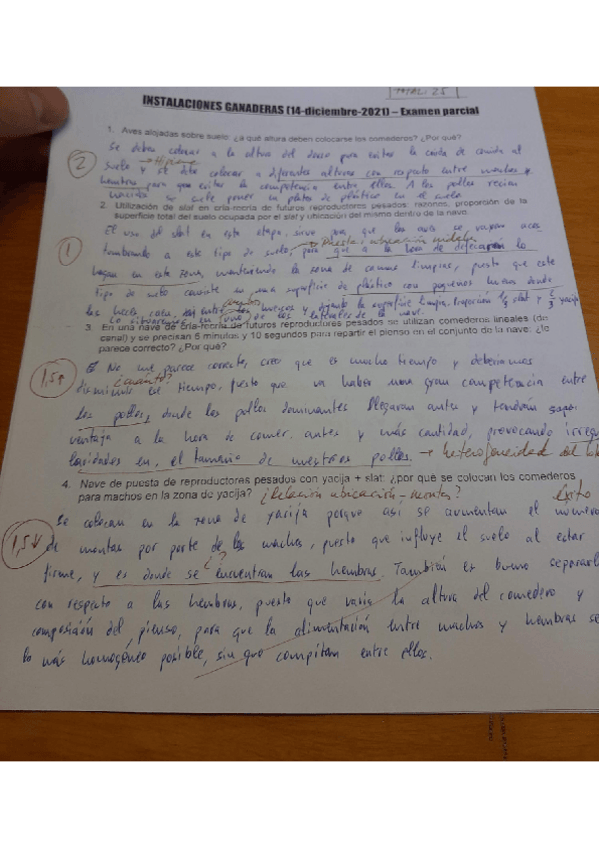 TOTAL: 25
INSTALACIONES GANADERAS (14-diciembre-2021) – Examen parcial
1. Aves alojadas sobre suelo: ¿a qué altura deben colocarse los comederos? ¿Por qué?
Se deben colocar a la altura del dorso para evitar la caída de comida al
2
suelo → Higiene y se debe colocar a diferentes alturas con respecto entre machos y
hembras para que evitar la competencia entre ellos. A los pollos recien
nacidos se suele poner en platos de plástico en el suelo
2. Utilización de slat en cría-recría de futuros reproductores pesados: razones, proporción de la
superficie total del suelo ocupada por el slat y ubicación del mismo dentro de la nave.
El uso del slat en esta etapa, sirve para que las aves se vayan
→ Puesta: ubicación
1
a este tipo de suelo, para que a la hora de defecar lo
hagan en esta zona, manteniendo la zona de camas limpias, puesto que este
tipo de suelo consiste en una superficie de plástico con pequeños huecos donde
las heces caen, y dejando la superficie limpia. Proporción 1/3 slat y 2/3 yacija
Lo situaremos en los laterales de la nave.
3. En una nave de cría-recría de futuros reproductores pesados se utilizan comederos lineales (de
canal) y se precisan 5 minutos y 10 segundos para repartir el pienso en el conjunto de la nave: ¿le
parece correcto? ¿Por qué?
No me parece correcto, creo que es mucho tiempo y deberiamos
¿cuánto?
1,5
disminuir el tiempo, puesto que va haber una gran competencia entre
los pollos, donde los pollos dominantes llegaran antes y tendrán
ventaja a la hora de comer antes y más cantidad, provocando
en el tamaño de nuestros pollos. → heterogeneidad
4. Nave de puesta de reproductores pesados con yacija + slat: ¿por qué se colocan los comederos
para machos en la zona de yacija? ¿Relación ubicación – montas?
Éxito
Se colocan en la zona de yacija porque así se aumentan el número
1,5
de montas por parte de los machos, puesto que influye el suelo al estar
¿?
firme, y es donde se encuentran las hembras. También es bueno separarlo
con respecto a las hembras, puesto que varía la altura del comedero y
composición del pienso, para que la alimentación entre machos y hembras se
lo más homogéneo posible, sin que compitan entre ellos.